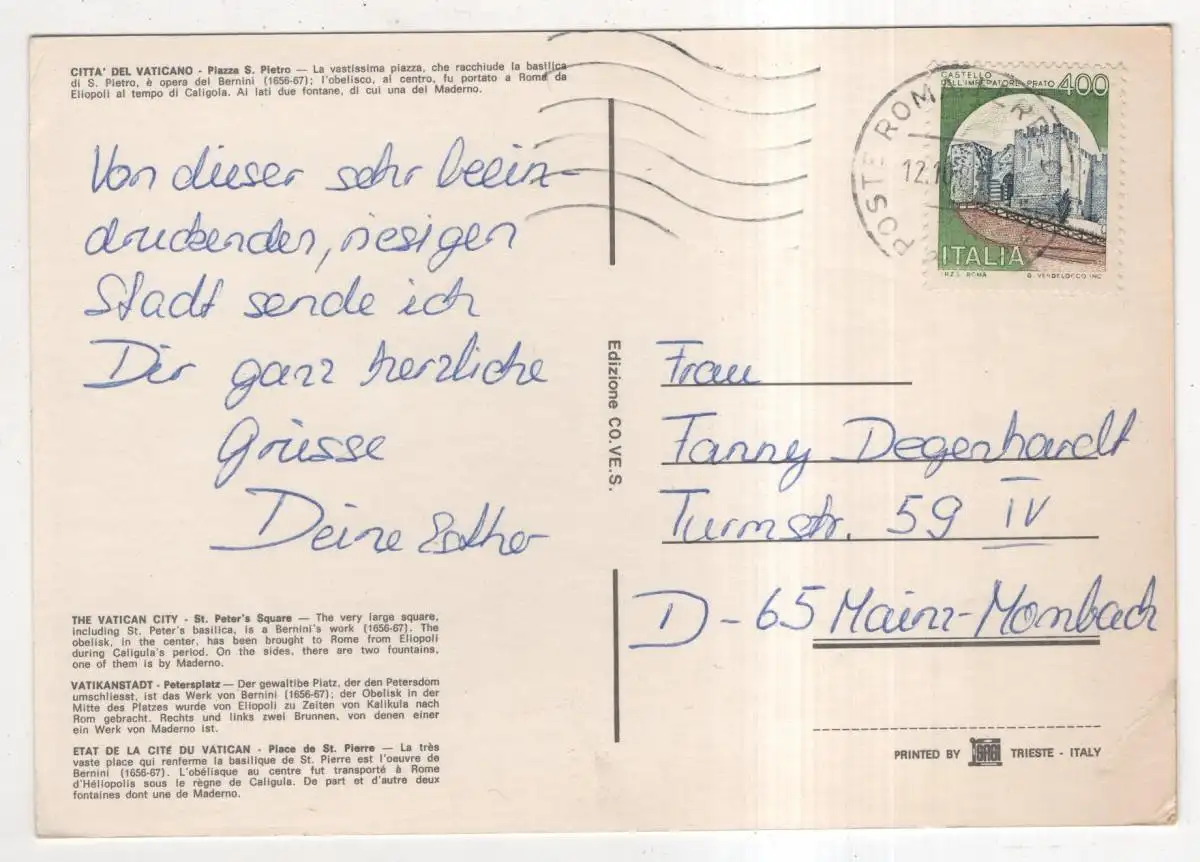 CITTA' DEL VATICANO - Piazza S. Pietro — La vastissima piazza, che racchiude la basilica
di S. Pietro, è opera del Bernini (1656-67); l'obelisco, al centro, fu portato a Roma da
Eliopoli al tempo di Caligola. Ai lati due fontane, di cui una del Maderno.
Von dieser sehr beein-
druckenden, riesigen
Stadt sende ich
Dir ganz herzliche
Grüsse
Deine Esther
THE VATICAN CITY - St. Peter's Square — The very large square,
including St. Peter's basilica, is a Bernini's work (1656-67). The
obelisk, in the center, has been brought to Rome from Eliopoli
during Caligula's period. On the sides, there are two fountains,
one of them is by Maderno.
VATIKANSTADT - Petersplatz — Der gewaltibe Platz, der den Petersdom
umschliesst, ist das Werk von Bernini (1656-67); der Obelisk in der
Mitte des Platzes wurde von Eliopoli zu Zeiten von Kalikula nach
Rom gebracht. Rechts und links zwei Brunnen, von denen einer
ein Werk von Maderno ist.
ETAT DE LA CITÉ DU VATICAN - Place de St. Pierre — La très
vaste place qui renferme la basilique de St. Pierre est l'oeuvre de
Bernini (1656-67). L'obélisque au centre fut transporté à Rome
d'Héliopolis sous le règne de Caligula. De part et d'autre deux
fontaines dont une de Maderno.
Edizione CO.VE.S.
POSTE ROMA
12.1
CASTELLO
DELL'IMPERATORE PRATO 400
ITALIA
I.P.Z.S. ROMA G. VERDELOCCO INC.
Frau
Fanny Degenhardt
Turmstr. 59 IV
D-65 Mainz-Mombach
PRINTED BY GAGI TRIESTE - ITALY